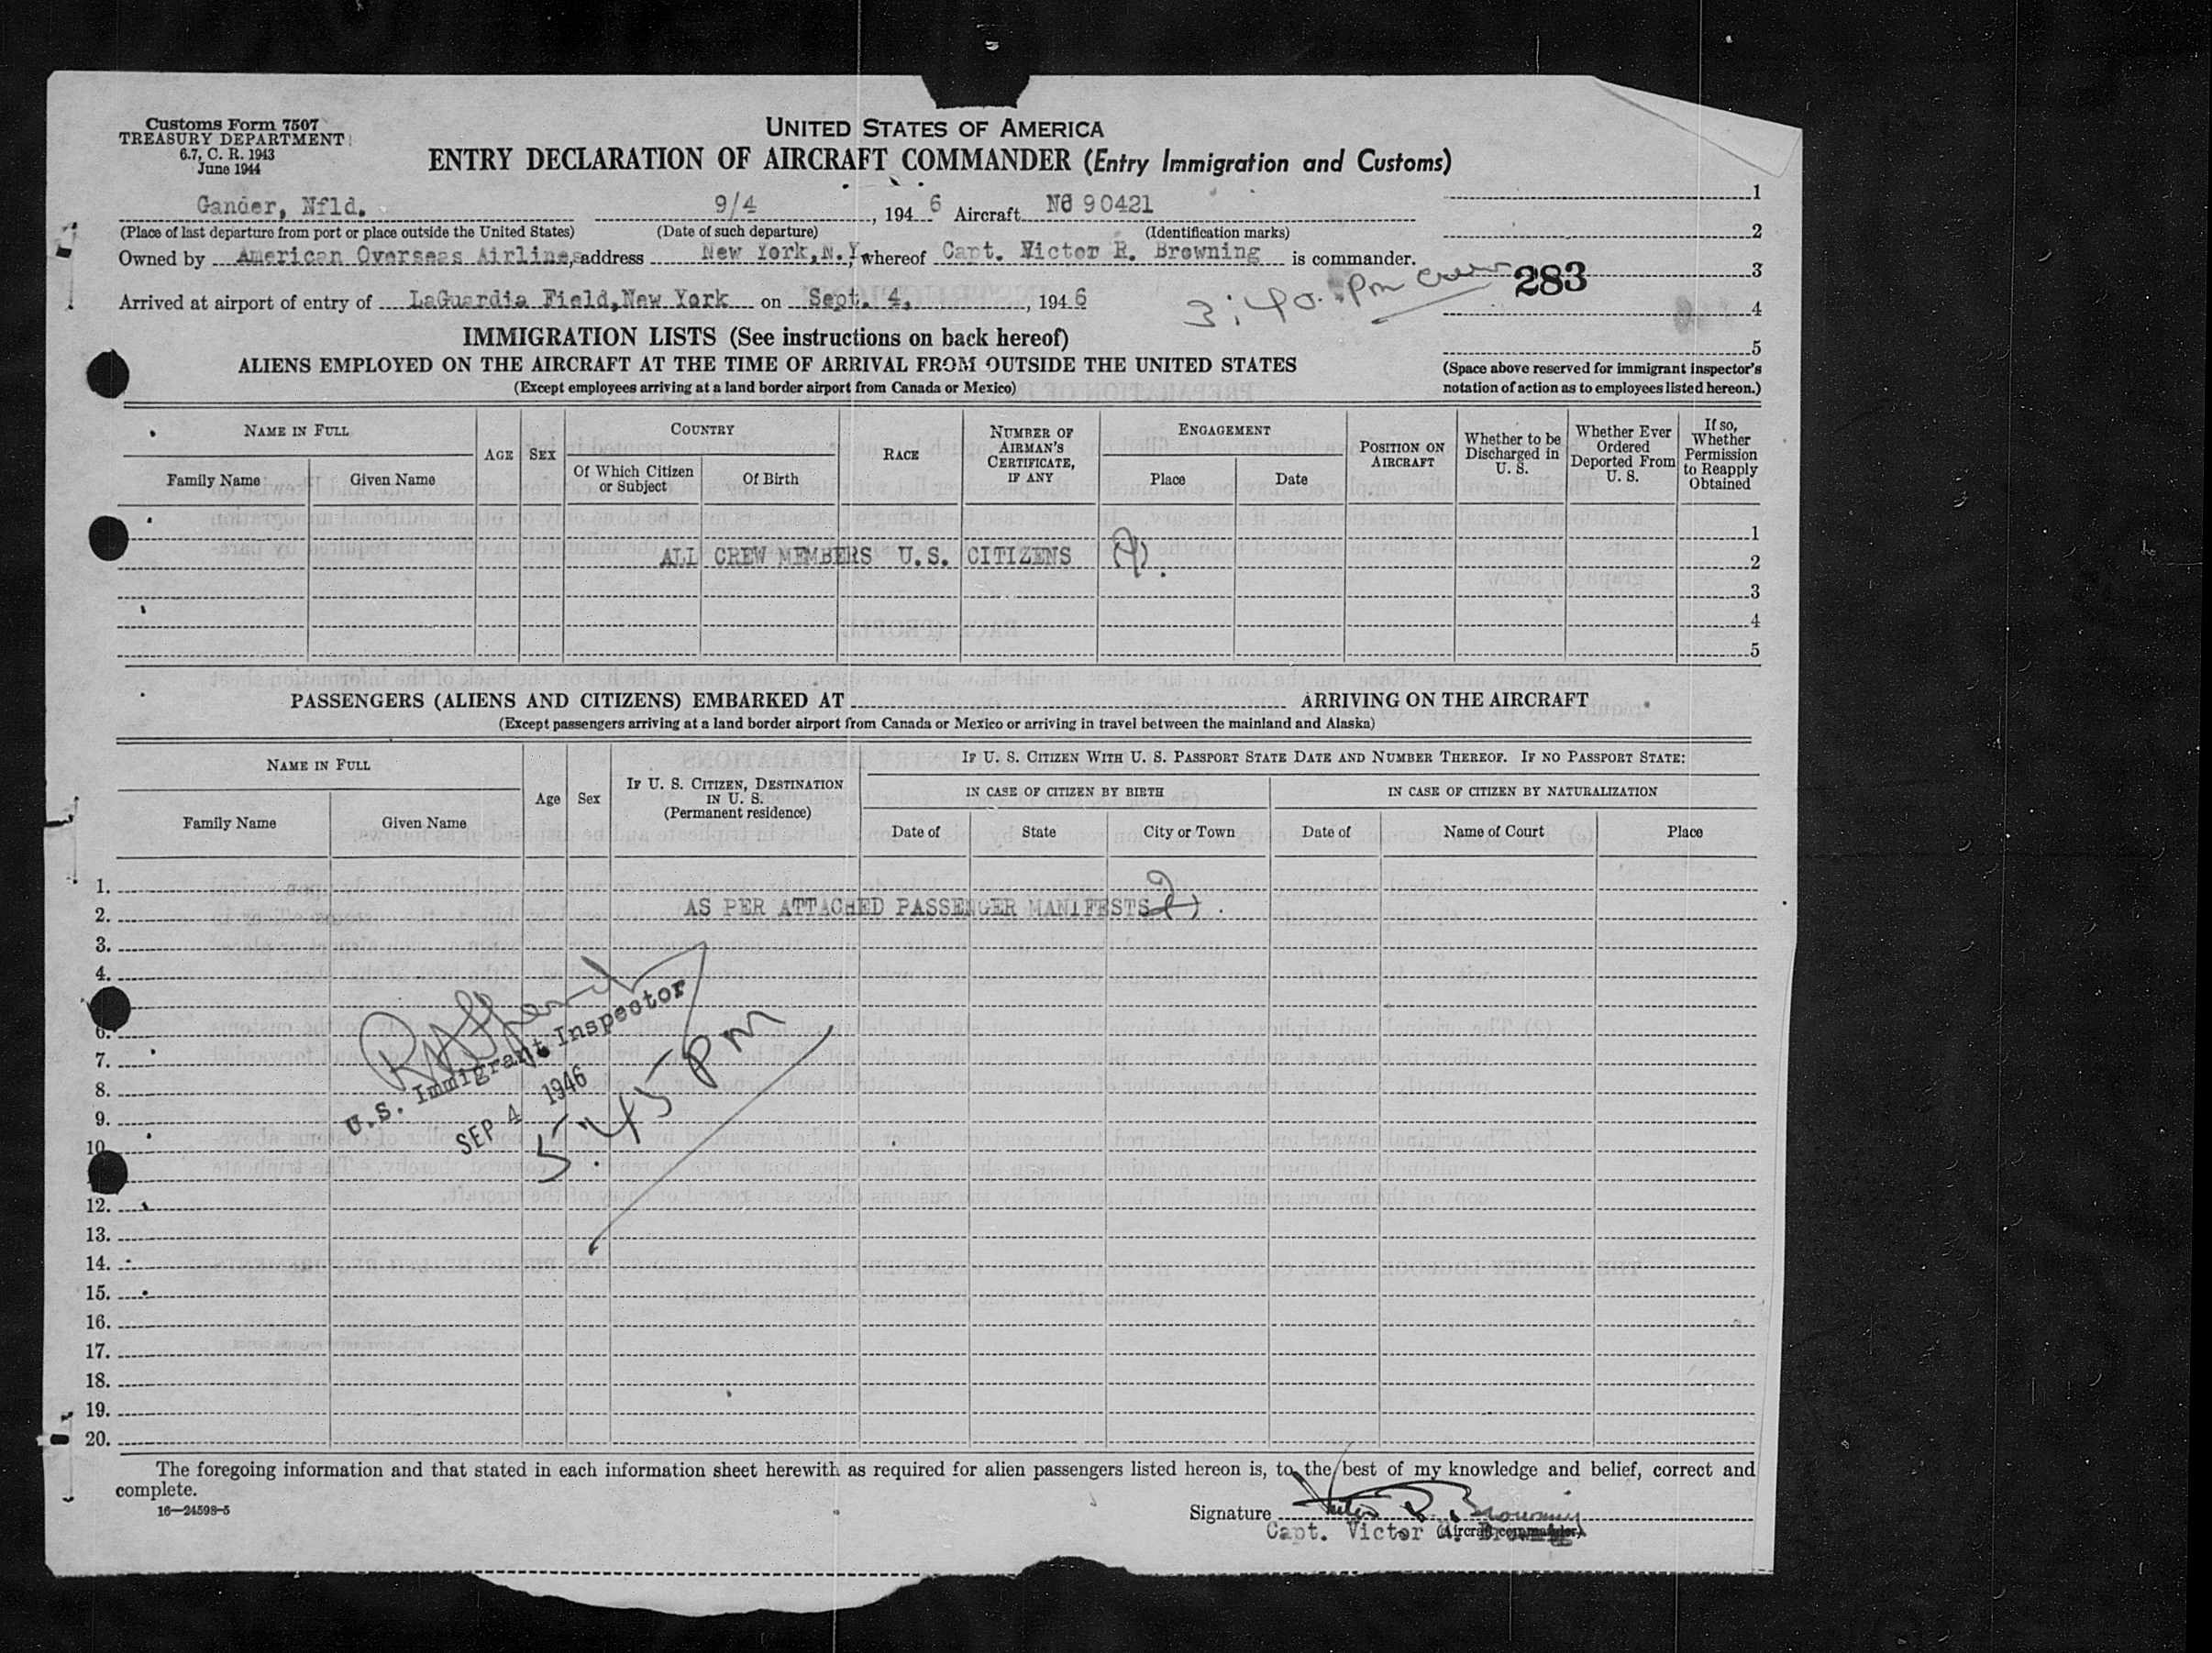 Customs Form 7507
TREASURY DEPARTMENT
6.7, C. R. 1943
June 1944
UNITED STATES OF AMERICA
ENTRY DECLARATION OF AIRCRAFT COMMANDER (Entry Immigration and Customs)
Gander, Nfld. 9/4, 1946 Aircraft 90421
(Place of last departure from port or place outside the United States) (Date of such departure) (Identification marks)
Owned by American Overseas Airlines, address New York, N.Y., whereof Capt. Victor R. Browning is commander.
Arrived at airport of entry of LaGuardia Field, New York on Sept. 4, 1946
3:40 Pm
283
1
2
3
4
5
(Space above reserved for immigrant inspector's
notation of action as to employees listed hereon.)
IMMIGRATION LISTS (See instructions on back hereof)
ALIENS EMPLOYED ON THE AIRCRAFT AT THE TIME OF ARRIVAL FROM OUTSIDE THE UNITED STATES
(Except employees arriving at a land border airport from Canada or Mexico)
NAME IN FULL
Family Name Given Name
AGE SEX
COUNTRY
Of Which Citizen or Subject
Of Birth
RACE
NUMBER OF AIRMAN'S CERTIFICATE, IF ANY
ENGAGEMENT
Place Date
POSITION ON AIRCRAFT
Whether to be Discharged in U. S.
Whether Ever Ordered Deported From U. S.
If so, Whether Permission to Reapply Obtained
1
ALL CREW MEMBERS U.S. CITIZENS
2
3
4
5
PASSENGERS (ALIENS AND CITIZENS) EMBARKED AT ARRIVING ON THE AIRCRAFT
(Except passengers arriving at a land border airport from Canada or Mexico or arriving in travel between the mainland and Alaska)
NAME IN FULL
Family Name Given Name
Age Sex
IF U. S. CITIZEN, DESTINATION IN U. S.
(Permanent residence)
IF U. S. CITIZEN WITH U. S. PASSPORT STATE DATE AND NUMBER THEREOF. IF NO PASSPORT STATE:
IN CASE OF CITIZEN BY BIRTH
Date of State City or Town
IN CASE OF CITIZEN BY NATURALIZATION
Date of Name of Court Place
1.
2. AS PER ATTACHED PASSENGER MANIFESTS
3.
4.
6.
7.
8.
9.
10.
12.
13.
14.
15.
16.
17.
18.
19.
20.
U.S. Immigrant Inspector
SEP 4 1946
5:45 Pm
The foregoing information and that stated in each information sheet herewith as required for alien passengers listed hereon is, to the best of my knowledge and belief, correct and
complete.
16—24598-5
Signature Victor R. Browning
Capt. Victor (Aircraft commander)